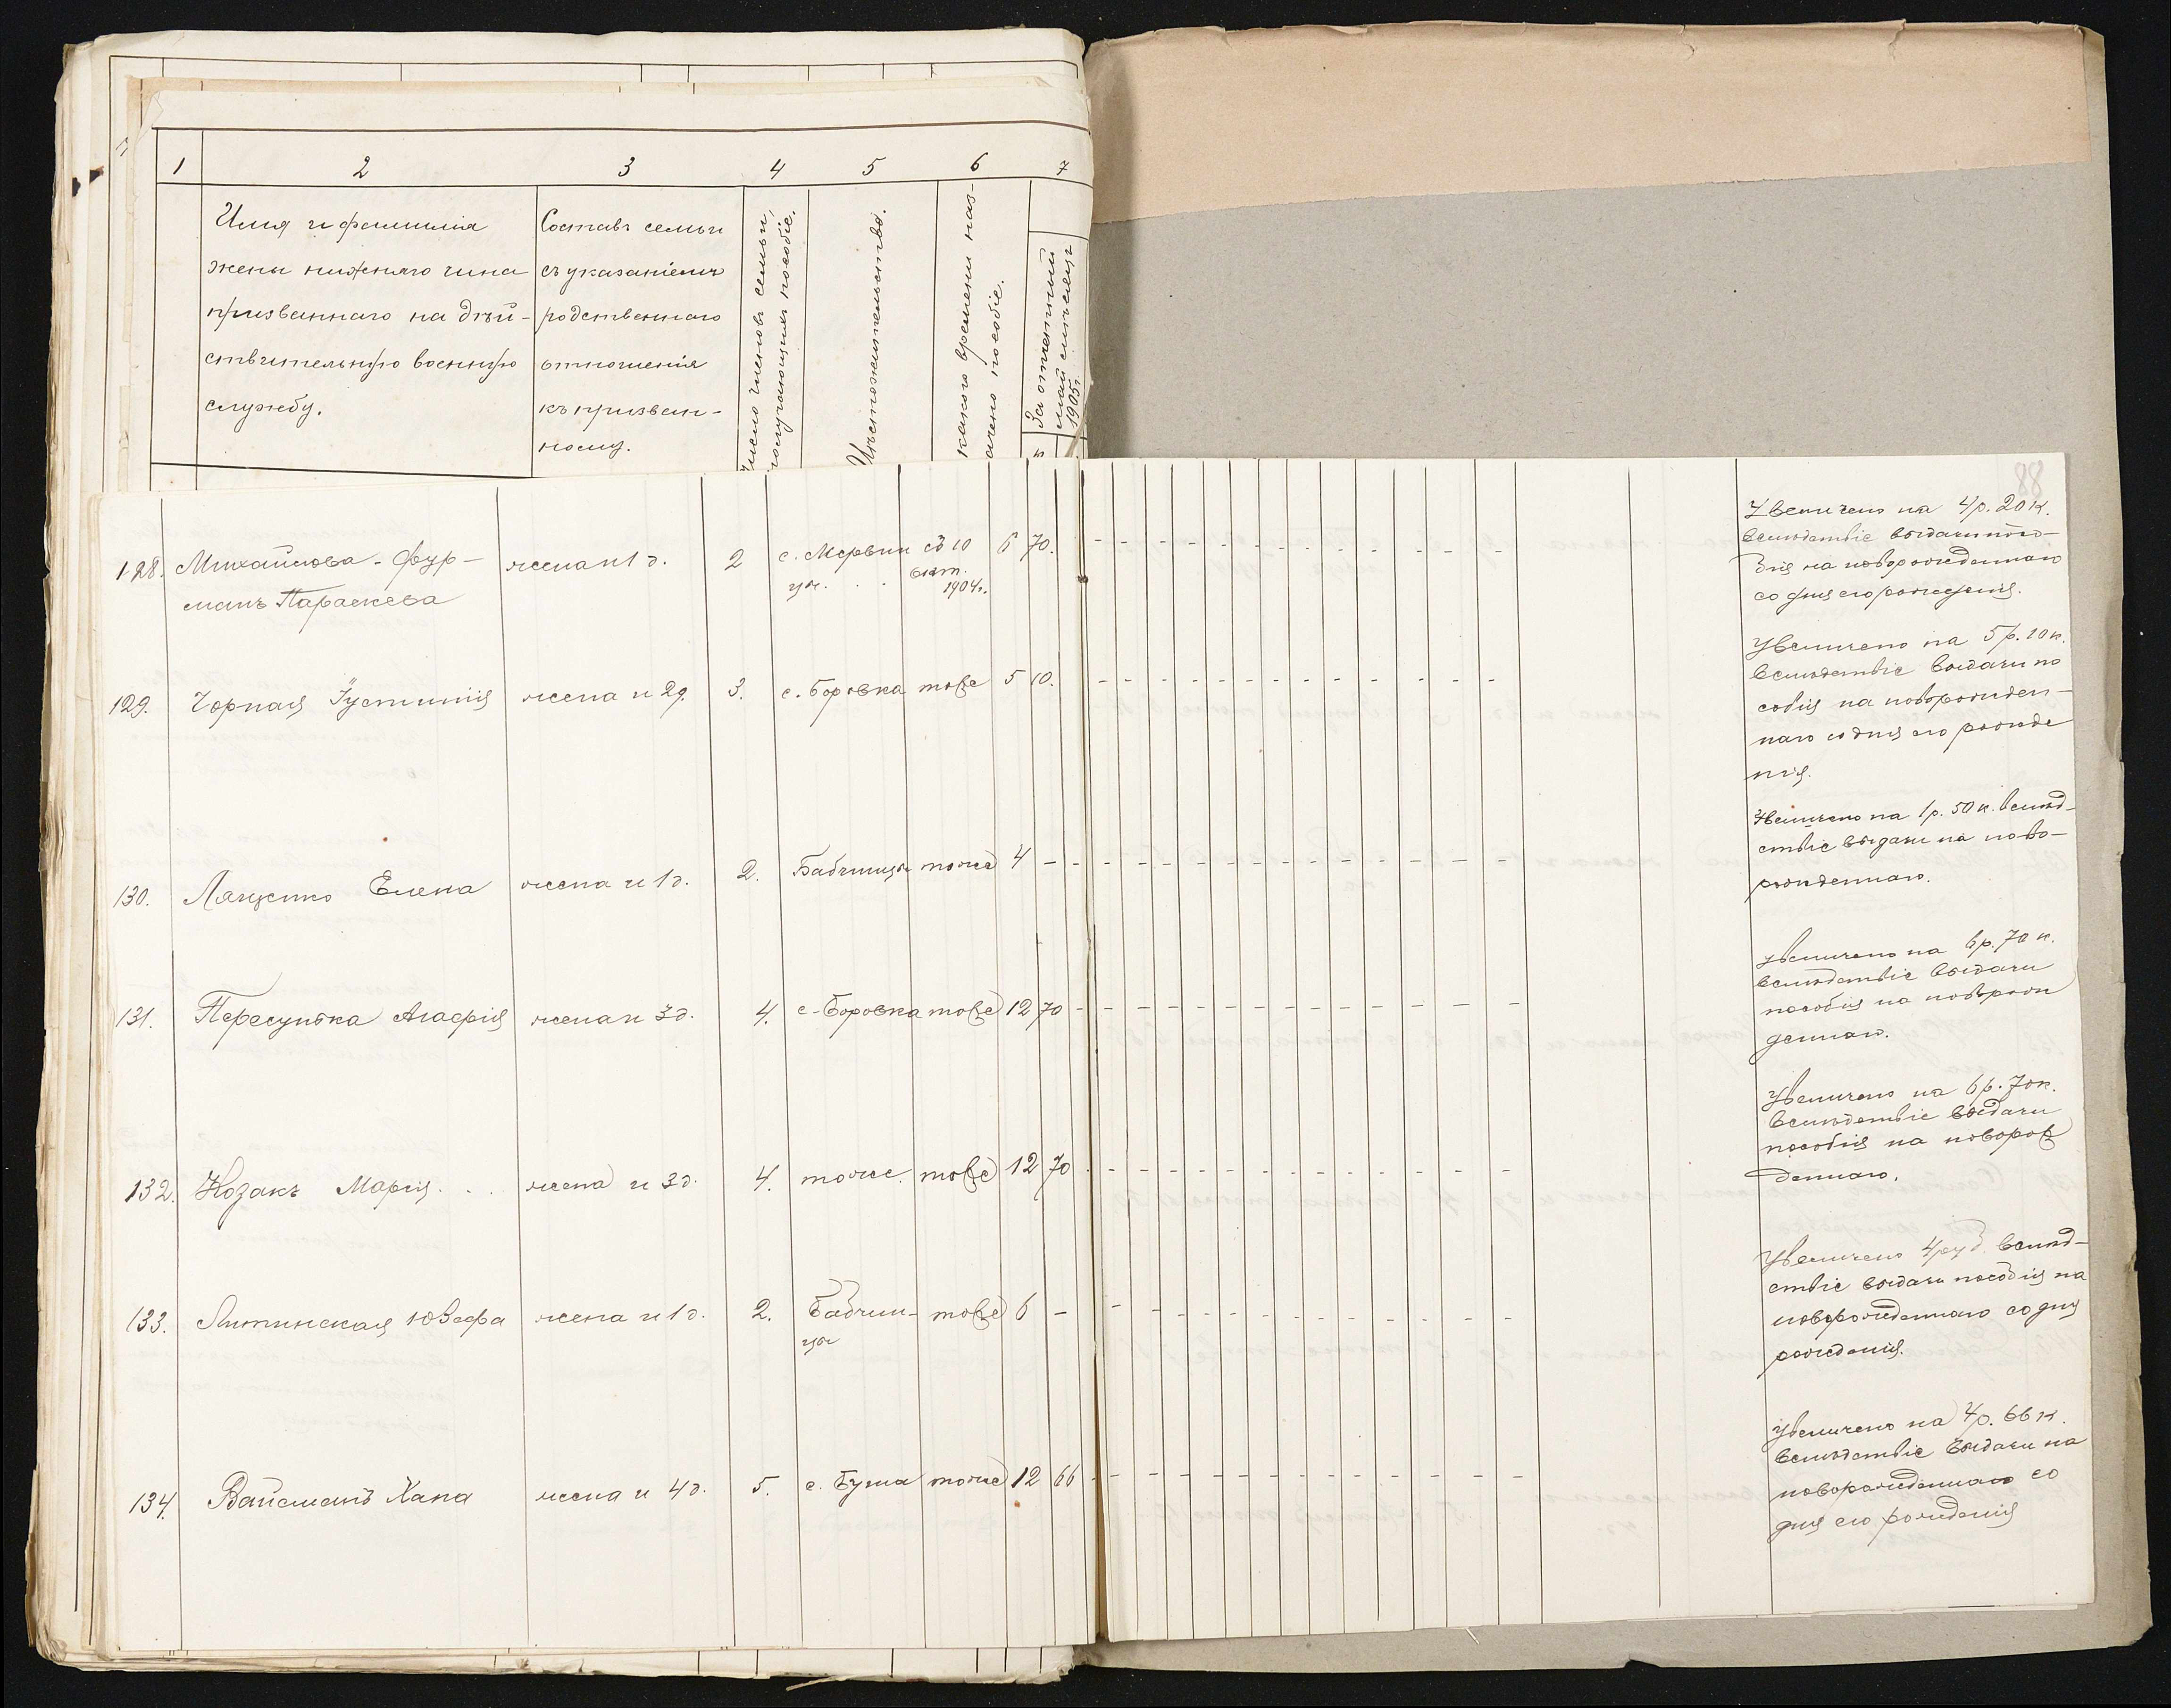 1 2 3 4 5 6 7
Имя и фамилія
жены нижняго чина
призваннаго на дѣй-
ствительную военную
службу.
Составъ семьи
съ указаніемъ
родственнаго
отношенія
къ призван-
ному.
Число членовъ семьи,
получающихъ пособіе.
Мѣстожительство.
какого времени наз-
ачено пособіе.
За отчетный
май мѣсяцъ
1905г.
88
128. Михайлова-Фур- жена и 1 д. 2 с. Мервин съ 10 6 70.
манъ Параскева цы. окт.
1904г.
Увеличено на 4р. 20к.
вслѣдствіе выдачи посо-
бія на новорожденнаго
со дня его рожденія.
129. Чорная Іустинія жена и 2д. 3. с. Боровка тоже 5 10.
Увеличено на 5р. 10к.
вслѣдствіе выдачи по
собія на новорожден-
наго со дня его рожде
нія.
130. Елена жена и 1д. 2. Бабчинцы тоже 4 -
Увеличено на 1р. 50к. вслѣд-
ствіе выдачи на ново-
рожденнаго.
131. Пересунька Агафія жена и 3д. 4. с. Боровка тоже 12 70
Увеличено на 6р. 70к.
вслѣдствіе выдачи
пособія на новорож
деннаго.
132. Козакъ Марія. жена и 3д. 4. тоже. тоже 12 70
Увеличено на 6р. 70к.
вслѣдствіе выдачи
пособія на новорож
деннаго.
133. Литинская Юзефа жена и 1д. 2. Бабчин- тоже 6 -
цы
Увеличено 4руб. вслѣд-
ствіе выдачи пособія на
новорожденнаго со дня
рожденія.
134. Вайсманъ Хана жена и 4д. 5. с. Буша тоже 12 66
Увеличено на 4р. 66к.
вслѣдствіе выдачи на
новорожденнаго со
дня его рожденія